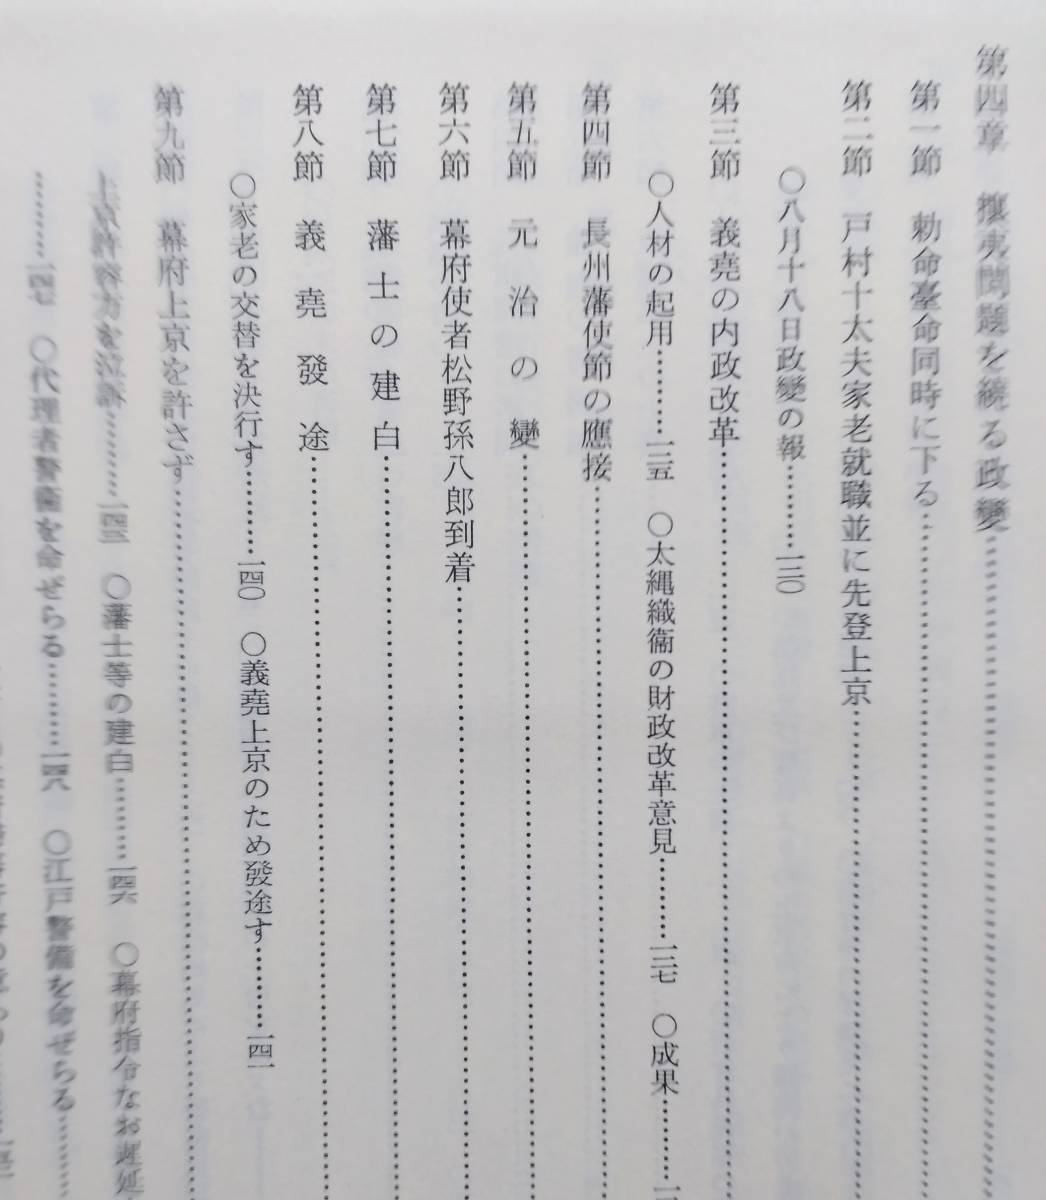 第四章 攘夷問題を繞る政變……………………
第一節 勅命臺命同時に下る……………………
第二節 戸村十太夫家老就職並に先登上京……………………
○八月十八日政變の報…………一三〇
第三節 義堯の内政改革……………………
○人材の起用…………一三五 ○太縄織衞の財政改革意見…………一三七 ○成果…………一
第四節 長州藩使節の應接……………………
第五節 元治の變……………………
第六節 幕府使者松野孫八郎到着……………………
第七節 藩士の建白……………………
第八節 義堯發途……………………
○家老の交替を決行す…………一四〇 ○義堯上京のため發途す…………一四一
第九節 幕府上京を許さず……………………
上京許容方を泣訴…………一四三 ○藩士等の建白…………一四六 ○幕府指令なお遅延
…………一四七 ○代理者警衞を命ぜらる…………一四八 ○江戸警備を命ぜらる…………